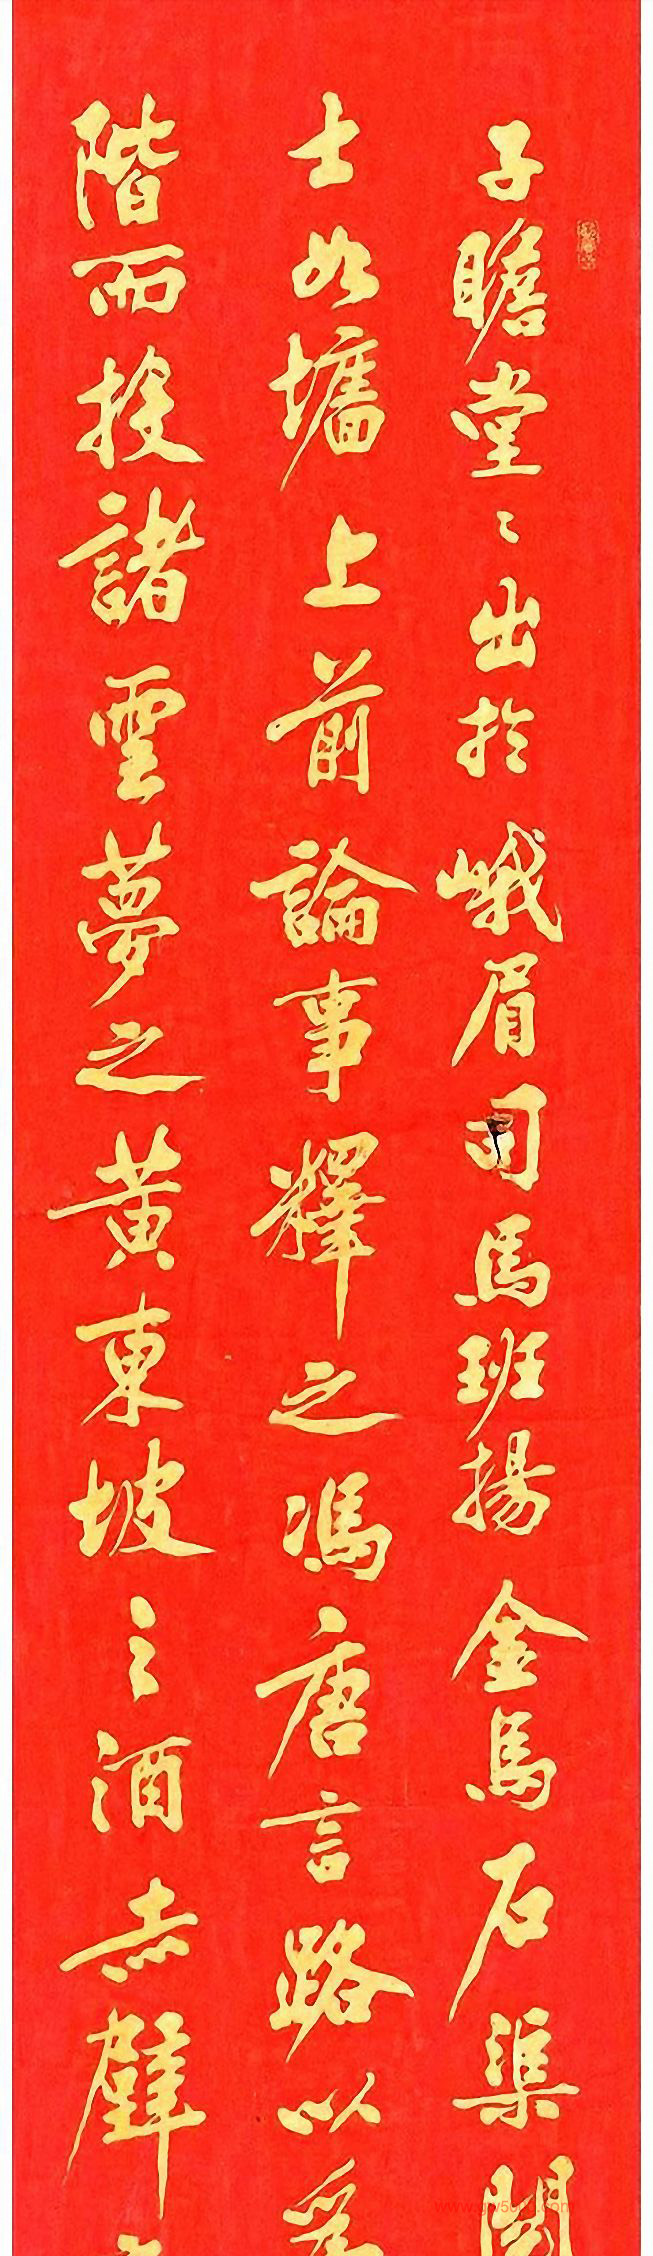 子瞻堂〻出於峨眉司馬班揚金馬石渠閱
士如墻上前論事釋之馮唐言路以爲
階而投諸雲夢之黃東坡之酒赤壁